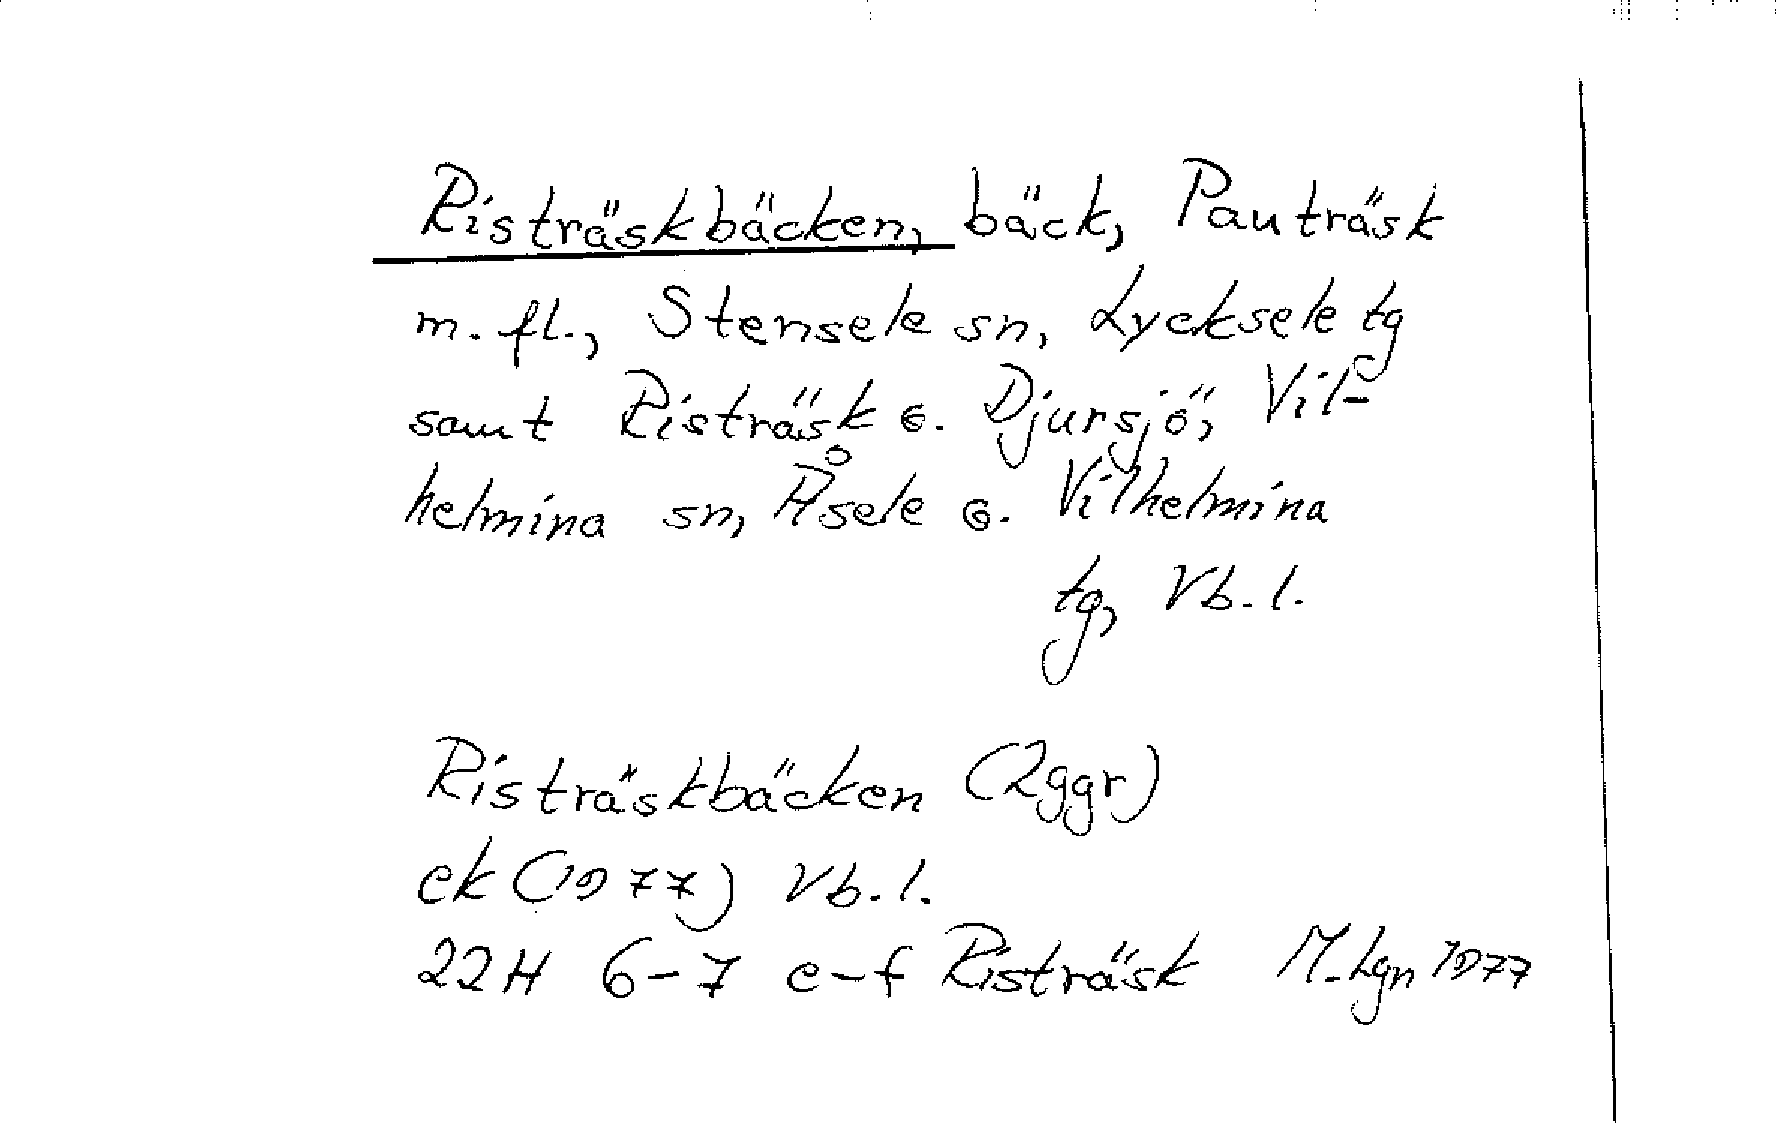 Risträskbäcken, bäck, Pauträsk
m. fl., Stensele sn, Lycksele tg
samt Risträsk o. Djursjö, Vil-
helmina sn, Åsele o. Vilhelmina
tg, Vb. l.
Risträskbäcken (2ggr)
ek (1977) Vb. l.
22H 6-7 e-f Risträsk M-Lgn 1977